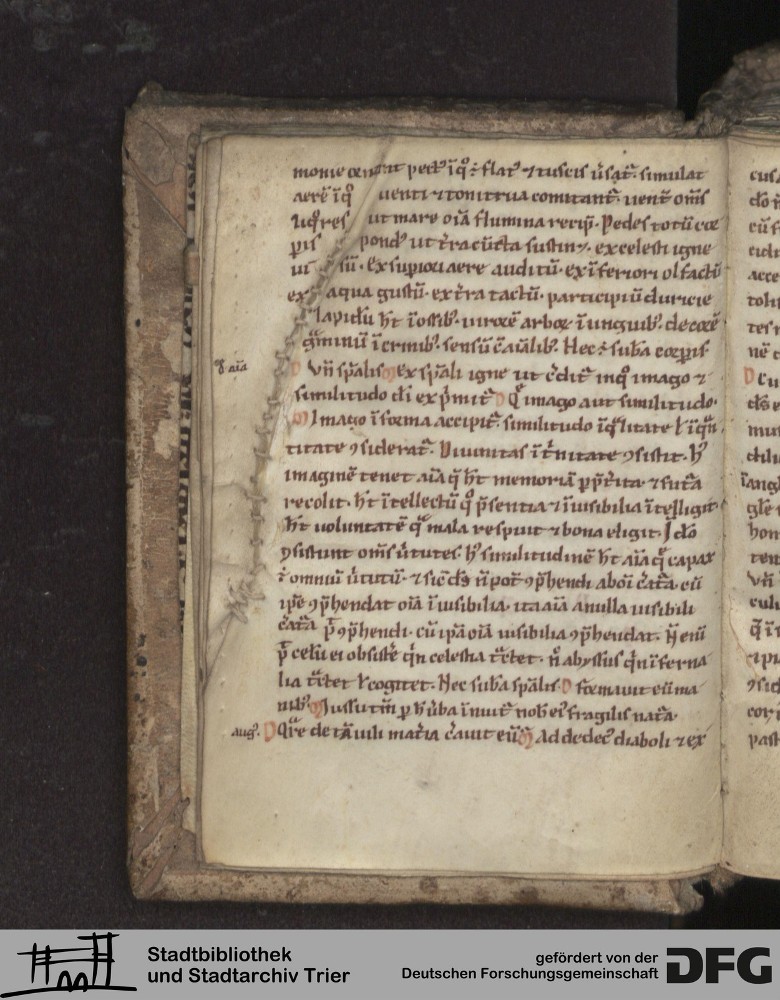 monie coñ pect᷒ ī qͦ ÷ flat᷒ ⁊ tussis ūsat᷑. simulat
aerē ī qͦ uenti ⁊ tonitrua comitant᷑. uent̄ om̄s
liqͦres ut mare oīa flumina recip̄. Pedes totū cor
ꝑis pond᷒ ut t̄ra cūcta sustin&. ex celesti igne
uisū. Ex supiori aere auditū. ex īferiori olfactū
ex aqua gustū. ex t̄ra tactū. participiū duricie
lapidū h̄t ī ossib᷒. uirorē arborꝝ ī unguib᷒. decorē
gͣminū ī crinib᷒. sensū c̄ aīalib᷒. Hec ÷ sub̄a corꝑis
D Vn̄ sp̄alis M Ex sp̄ali igne ut c̄dit᷑ in qͦ imago ⁊
similitudo dī exp̄mit᷑ D Qͥ imago aut similitudo.
M Imago ī forma accipit᷑. similitudo ī qͣlitate ł ī qͣn
titate ↄsiderat᷑. Diuinitas ī t̄nitate ↄsistit. hͦ
imaginē tenet aīa q̄ h̄t memoriā ꝑ p̄t̄ita ⁊ fut̄a
recolit. h̄t ītellectū qͦ p̄sentia ⁊ īuisibilia ītelligit.
h̄t voluntatē qͣ mala respuit ⁊ bona eligit. I dō
ↄsistunt om̄s ūtutes hͦ similitudinē h̄t aīa q̄ capax
÷ omniū ūtutū. ⁊ sic ds̄ n̄ pot᷑ ↄp̄hendi ab oī c̄at̄a cū
ip̄e ↄp̄hendat oīa īuisibilia. ita aīa a nulla uisibili
c̄at̄a p̄ ↄp̄hendi. cū ip̄a oīa uisibilia ↄp̄hendat. N̄ eni
p̄ celū ei obsist̄e qͥn celestia t̄ctet. n̄ abyssus qͥn īferna
lia t̄ctet ł cogitet. Hec sub̄a sp̄alis D formauit eū ma
nib᷒ M Iussu tm̄ ꝑ h̄ ūba īnuit nob̄ eī fragilis nat̄a.
D Qͣre de tā uili mat̄ia c̄auit eū M Ad dedec᷒ diaboli ⁊ ex
ꝺ aīa
aug᷒.
Stadtbibliothek
und Stadtarchiv Trier
gefördert von der
Deutschen Forschungsgemeinschaft
DFG